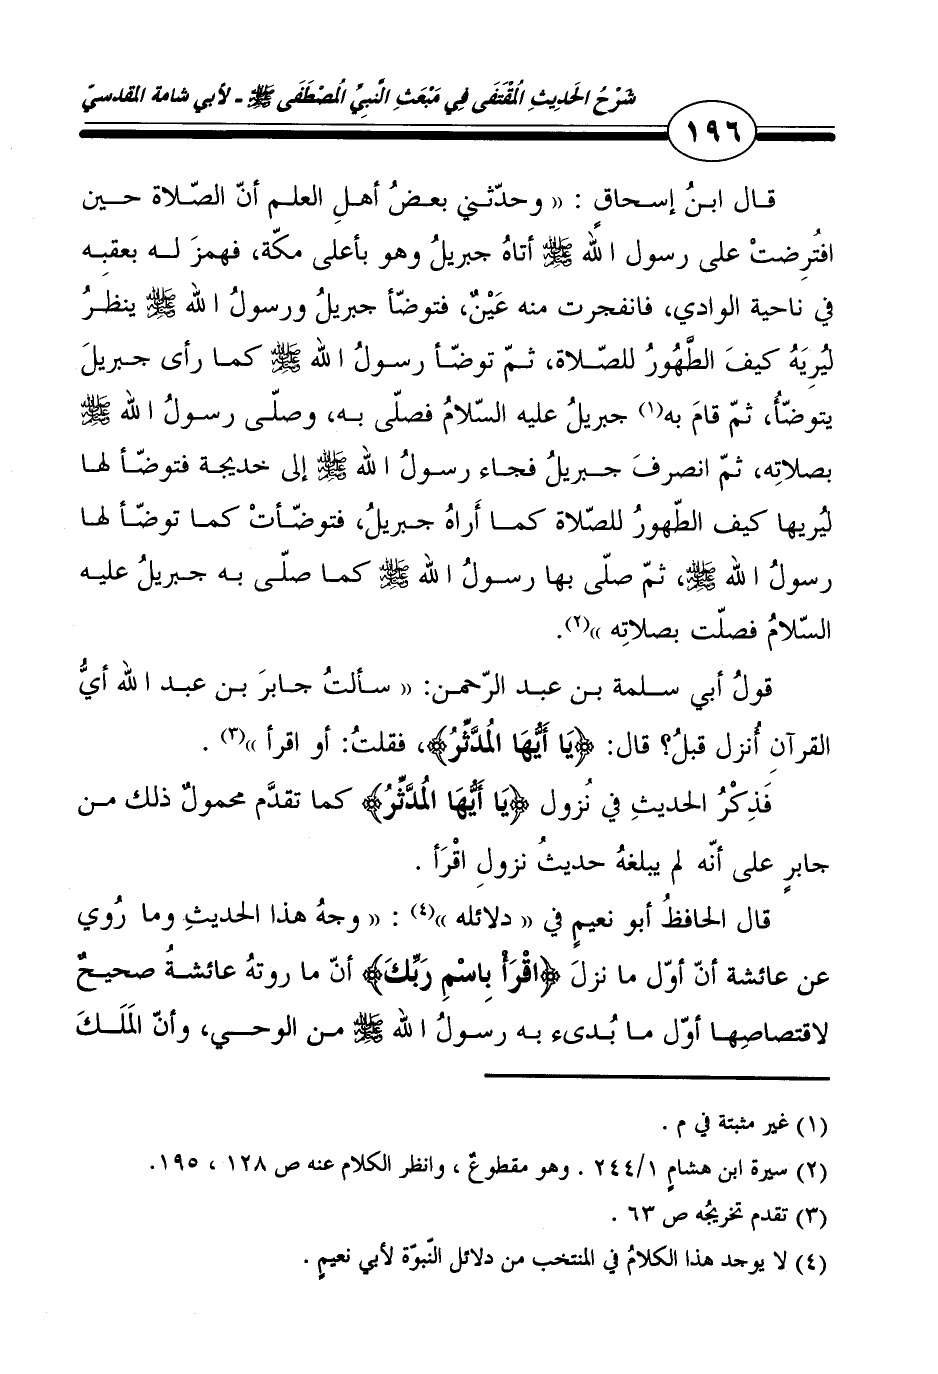 شَرْحُ الحَدِيثِ المُقْتَفَى فِي مَبْعَثِ النَّبِيِّ المُصْطَفَى ﷺ - لأبي شامة المقدسيّ
١٩٦
قـال ابـنُ إسـحاقٍ : « وحدّثـني بعـضُ أهـلِ العلـم أنّ الصّـلاة حـين
افتُرِضتْ على رسول الله ﷺ أتاهُ جبريلُ وهو بأعلى مكّة، فهمزَ لـه بعقبِـه
في ناحية الوادي، فانفجرت منه عَيْنٌ، فتوضّأ جبريلُ ورسولُ الله ﷺ ينظرُ
لُيرِيَهُ كيفَ الطَّهُورُ للصّـلاة، ثـمّ توضّـأ رسـولُ الله ﷺ كمـا رأى جبريلَ
يتوضّأُ، ثمّ قامَ به(١) جبريلُ عليه السّلامُ فصلّى بـه، وصلّـى رسـولُ الله ﷺ
بصلاتِه، ثـمّ انصـرفَ جـبريلُ فجـاء رسـولُ الله ﷺ إلى خديجـة فتوضّـأ لهـا
لُيريها كيف الطّهورُ للصّلاة كمـا أَراهُ جـبريلُ، فتوضّـأتْ كمـا توضّـأ لهـا
رسولُ الله ﷺ، ثمّ صلّى بها رسـولُ الله ﷺ كمـا صلّـى بـه جـبريلُ عليـه
السّلامُ فصلّت بصلاتِه »(٢).
قولُ أبي سـلمة بـن عبـد الرّحمـن: « سـألتُ جـابرَ بـن عبـد الله أيُّ
القرآنِ أُنزل قبلُ؟ قال: ﴿يَا أَيُّهَا الْمُدَّثِّرُ﴾، فقلتُ: أو اقرأ »(٣) .
فَذِكْرُ الحديثِ في نُزول ﴿يَا أَيُّهَا الْمُدَّثِّرُ﴾ كما تقدَّم محمولٌ ذلك مـن
جابرٍ على أنّه لم يبلغهُ حديثُ نزولِ اقْرَأ .
قال الحافظُ أبو نعيمٍ في « دلائله »(٤) : « وجهُ هذا الحديثِ وما رُوي
عن عائشة أنّ أوّل ما نزلَ ﴿اقْرَأْ بِاسْمِ رَبِّكَ﴾ أنّ ما روتهُ عائشةُ صحيحٌ
لاقتصاصِهـا أوّل مـا بُـدىء بـه رسـولُ الله ﷺ مـن الوحـي، وأنّ المَلَـكَ
(١) غير مثبتة في م .
(٢) سيرة ابن هشامٍ ٢٤٤/١ . وهو مقطوعٌ ، وانظر الكلام عنه ص ١٢٨ ، ١٩٥.
(٣) تقدم تخريجُه ص ٦٣ .
(٤) لا يوجد هذا الكلامُ في المنتخب من دلائل النّبوّة لأبي نعيمٍ .